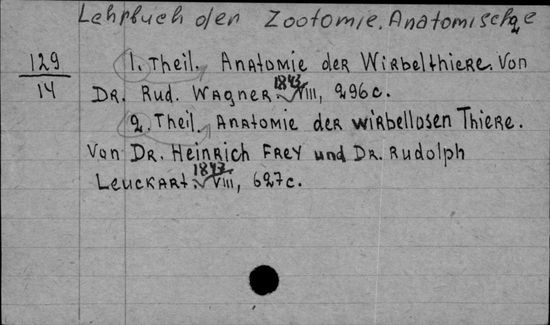 Lehrbuch der Zootomie. Anatomische
129
14
1. Theil. Anatomie der Wirbelthiere. Von
Dr. Rud. Wagner 1843 VIII, 296 c.
2. Theil. Anatomie der wirbellosen Thiere.
Von Dr. Heinrich Frey und Dr. Rudolph
Leuckart. 1847 VIII, 627 c.